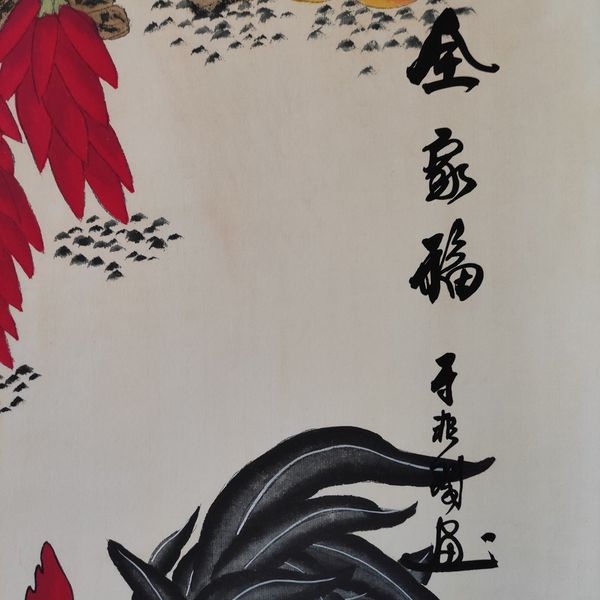 全家福
于非闇画